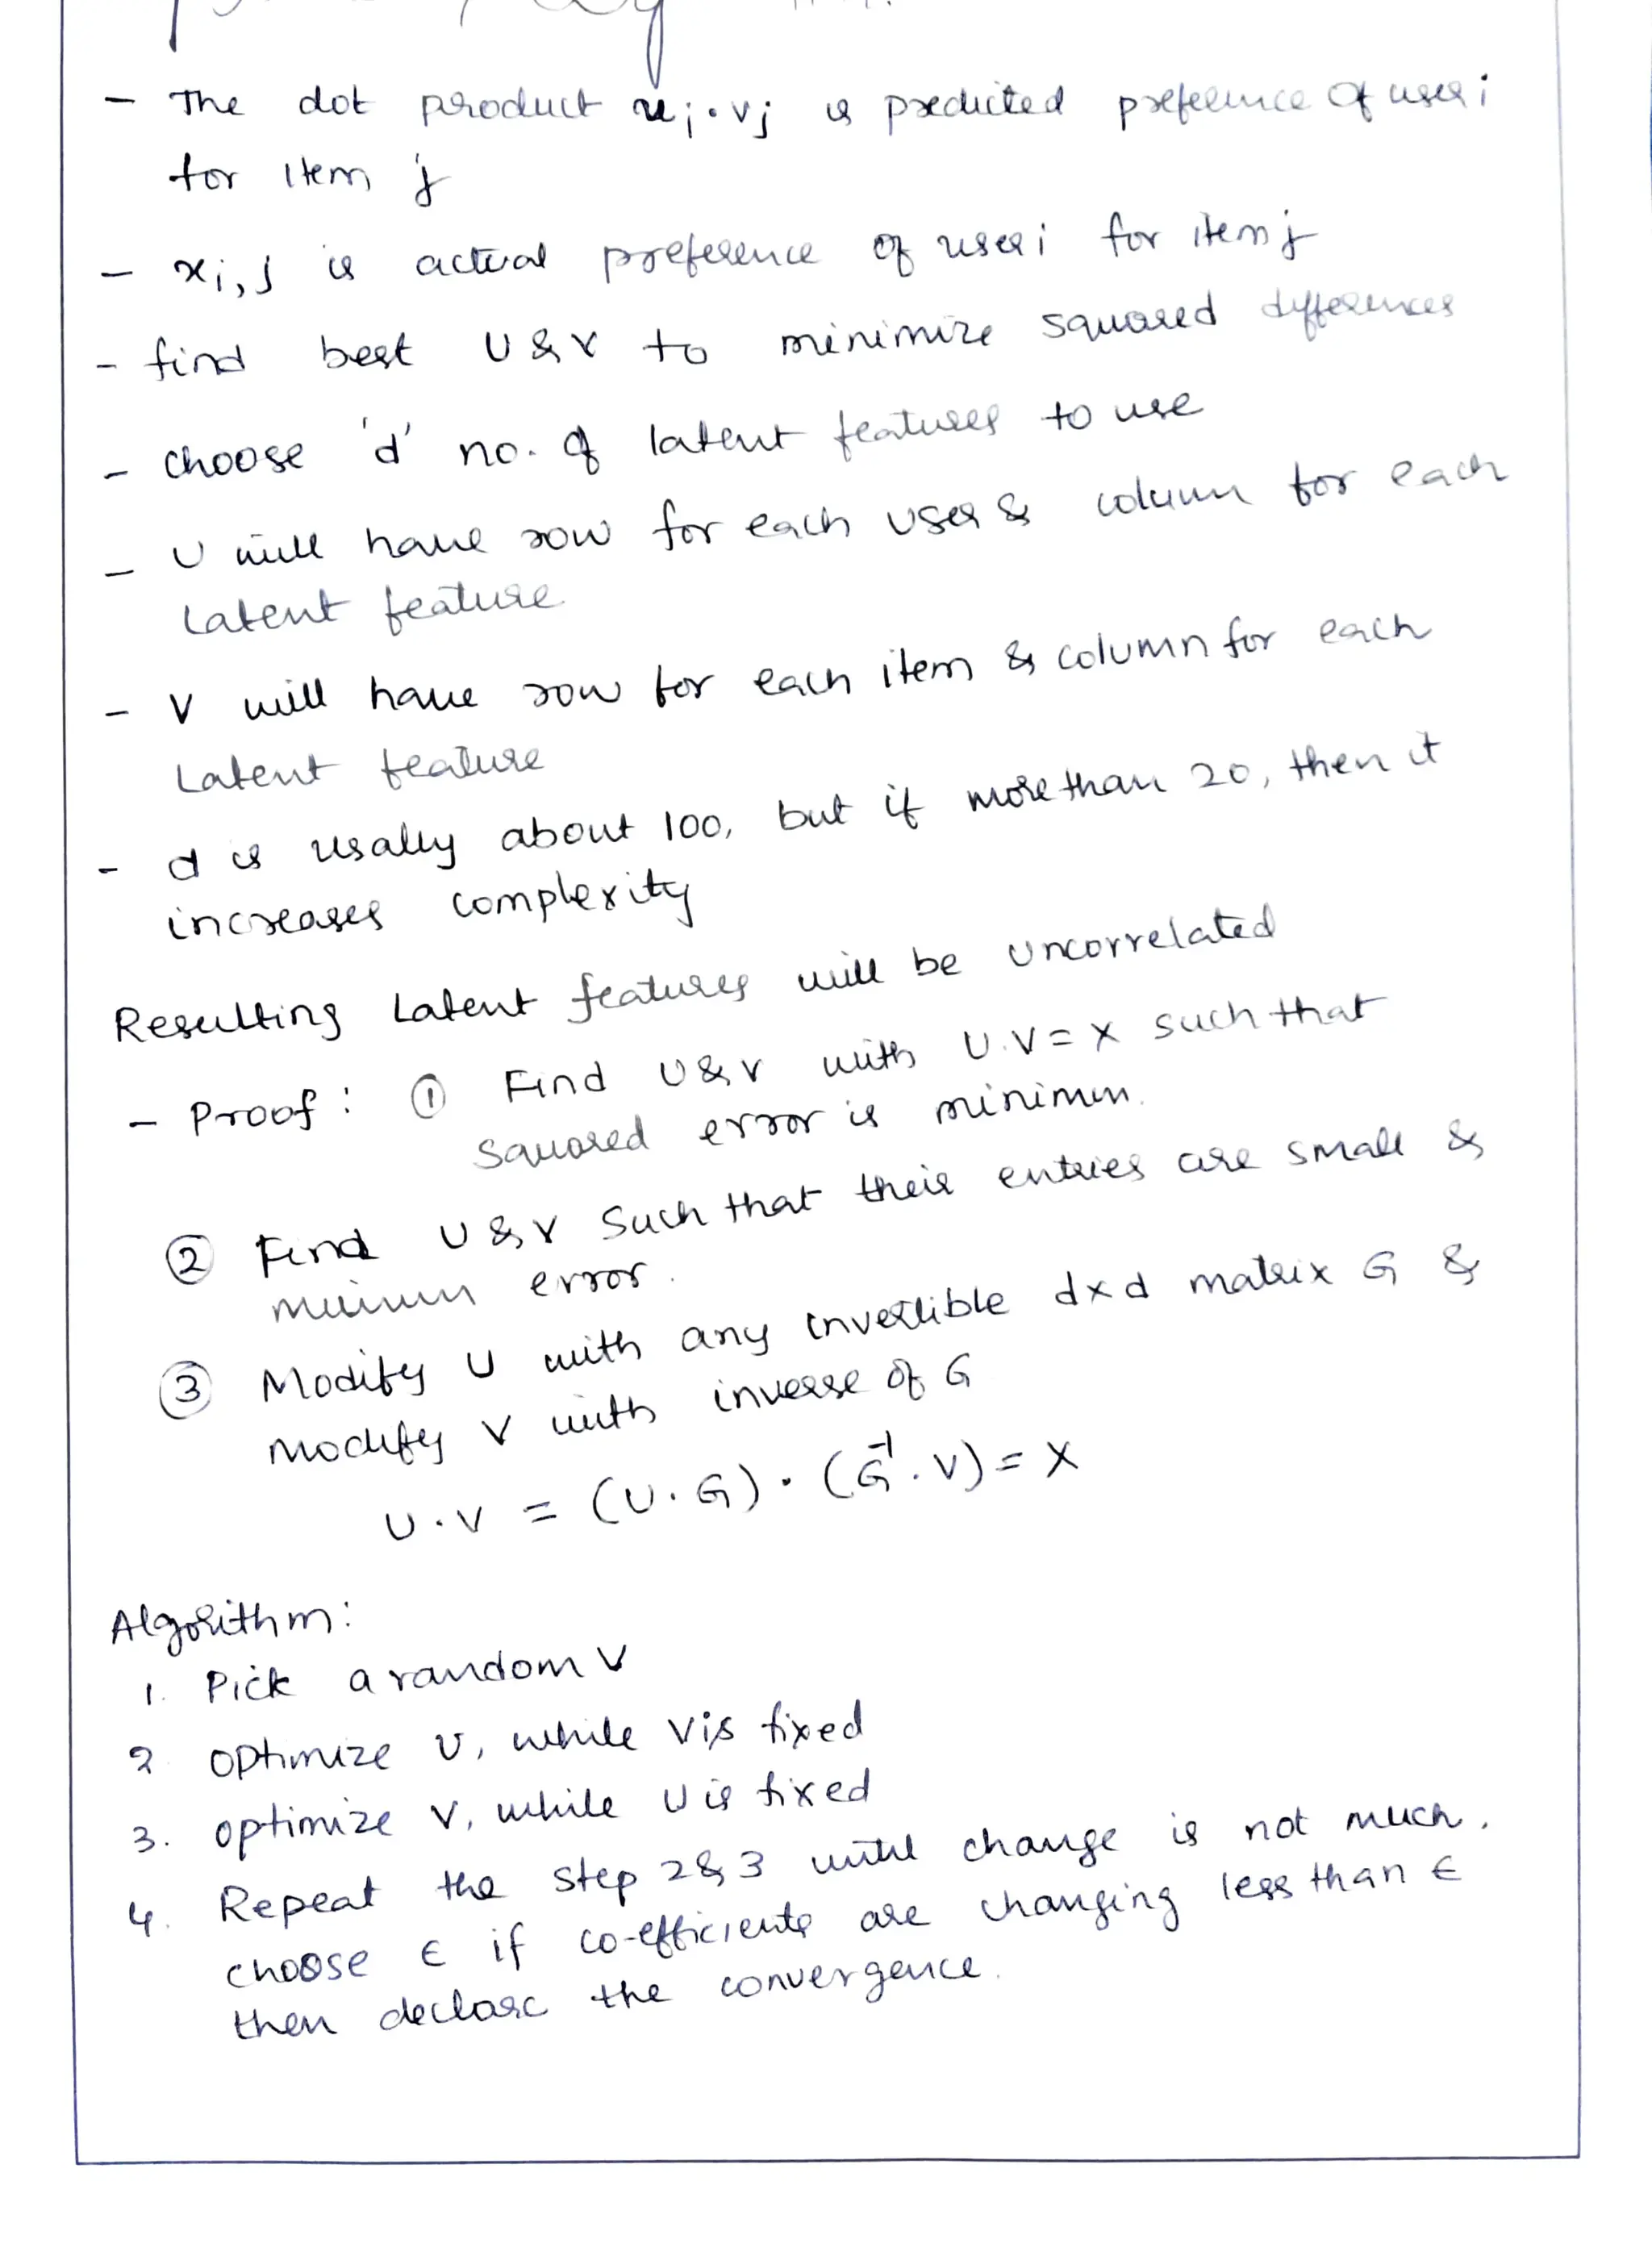 - The dot product ui.vj is predicted preference of user i
for item j
- xi,j is actual preference of user i for item j
- find best U & V to minimize squared differences
- choose 'd' no. of latent features to use
- U will have row for each user & column for each
Latent feature
- V will have row for each item & column for each
Latent feature
- d is usally about 100, but if more than 20, then it
increases complexity
Resulting Latent features will be uncorrelated
- Proof : ① Find U & V with U.V = X such that
squared error is minimum.
② Find U & V Such that their entries are small &
minimum error.
③ Modify U with any invertible d x d matrix G &
Modify V with inverse of G
U.V = (U.G) . (G⁻¹.V) = X
Algorithm:
1. Pick a random V
2. optimize U, while V is fixed
3. optimize V, while U is fixed
4. Repeat the step 2 & 3 until change is not much.
choose ϵ if co-efficients are changing less than ϵ
then declare the convergence.